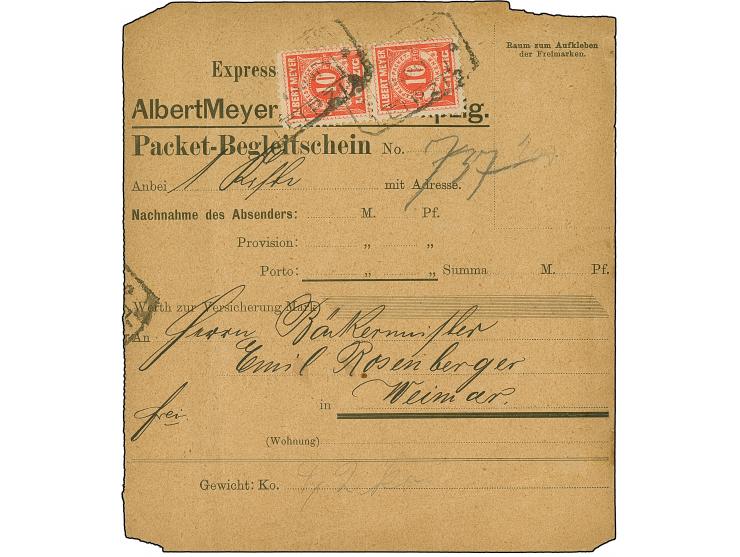 Raum zum Aufkleben
der Freimarken.
Express
ALBERT MEYER 10 LEIPZIG
ALBERT MEYER 10 LEIPZIG
Albert Meyer, pzig.
Packet-Begleitschein No. 737
Anbei 1 Kiste mit Adresse.
Nachnahme des Absenders: M. Pf.
Provision: „ „
Porto: „ „ Summa M. Pf.
Werth zur Versicherung Mark)
An Herrn Bäckermeister
Emil Rosenberger
in Weimar.
frei
(Wohnung)
Gewicht: Ko. 92 Ko